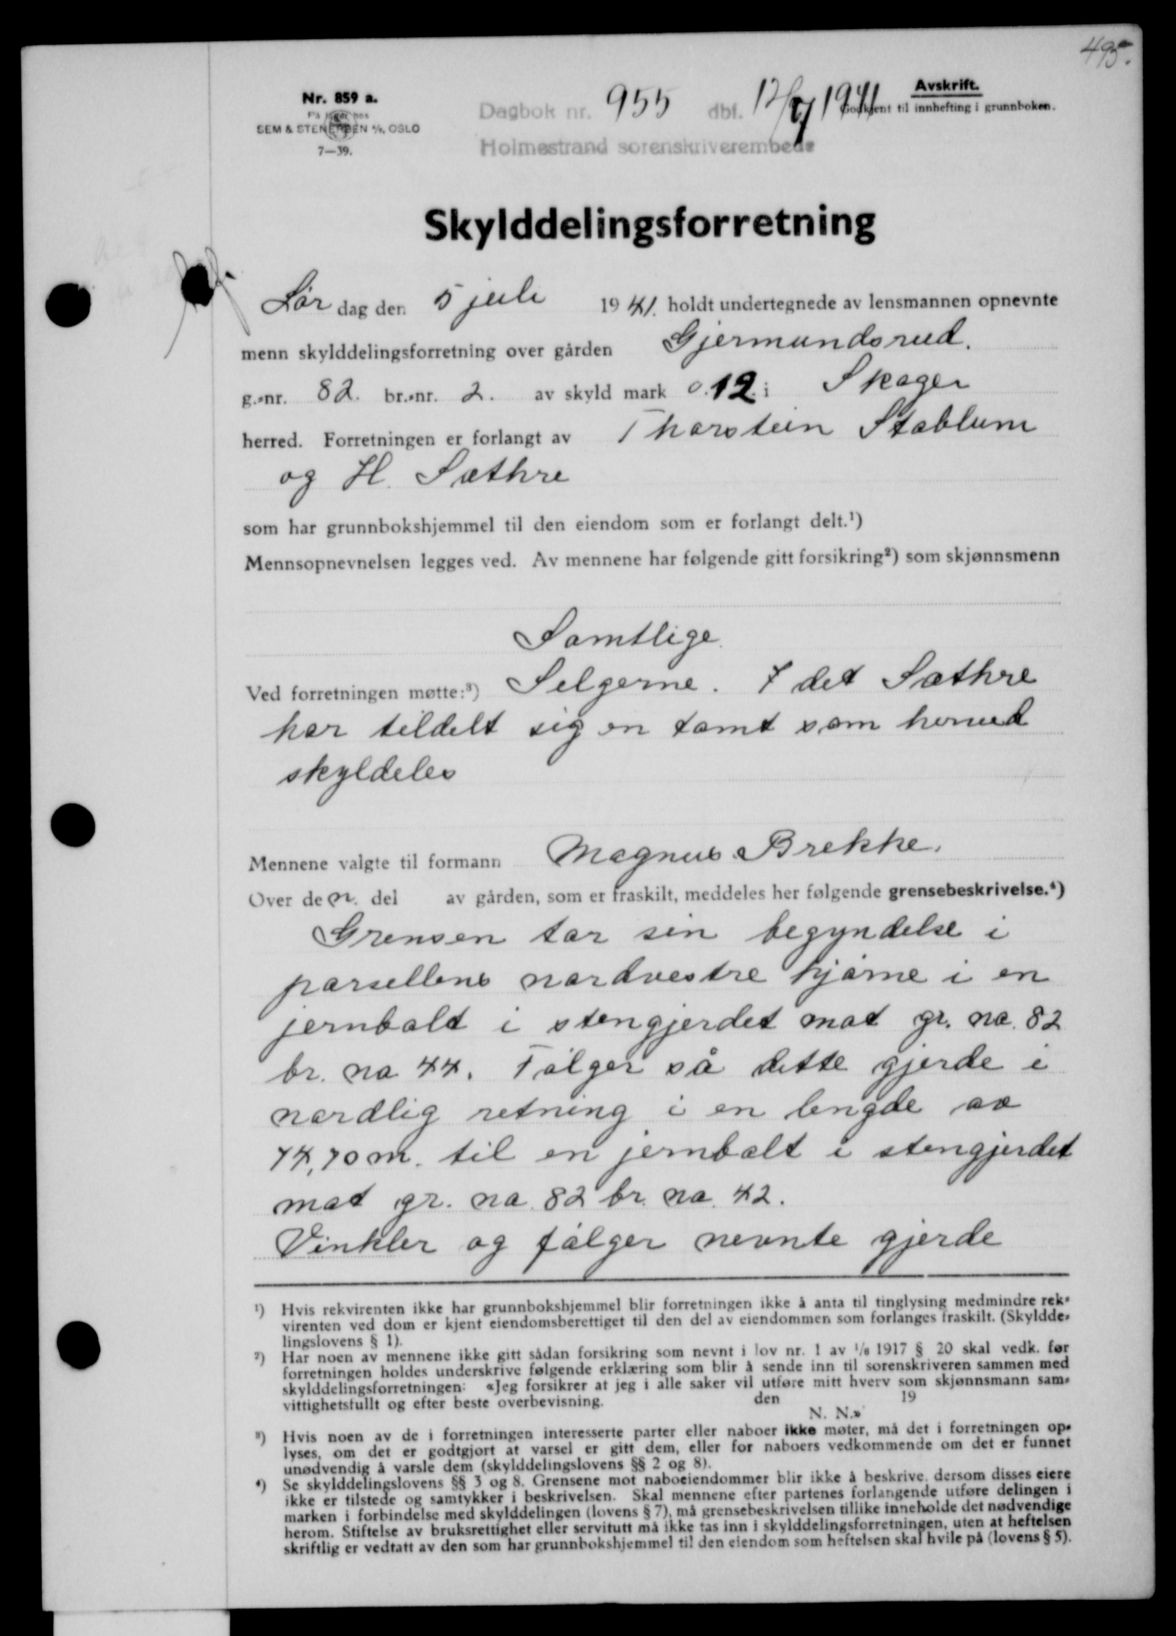 495.
Nr. 859 a.
På lager hos
SEM & STENERSEN A/S, OSLO
7—39.
Dagbok nr. 955 dbf. 12/7 1941
Holmestrand sorenskriverembede
Avskrift.
Godkjent til innhefting i grunnboken.
Skylddelingsforretning
Lør dag den 5 juli 1941. holdt undertegnede av lensmannen opnevnte
menn skylddelingsforretning over gården Gjermundsrud.
g.-nr. 82. br.-nr. 2. av skyld mark 0.12. i Skoger
herred. Forretningen er forlangt av Thorstein Stablum
og H. Sæthre
som har grunnbokshjemmel til den eiendom som er forlangt delt.¹)
Mennsopnevnelsen legges ved. Av mennene har følgende gitt forsikring²) som skjønnsmenn
Samtlige.
Ved forretningen møtte:³) Selgerne. I det Sæthre
har tildelt sig en tomt som herved
skyldeles
Mennene valgte til formann Magnus Brekke.
Over den. del av gården, som er fraskilt, meddeles her følgende grensebeskrivelse.⁴)
Grensen tar sin begyndelse i
parsellens nordvestre hjørne i en
jernbolt i stengjerdet mot gr. no. 82
br. no 44. Følger så dette gjerde i
nordlig retning i en lengde av
74,70 m. til en jernbolt i stengjerdet
mot gr. no. 82 br. no. 42.
Vinkler og følger nevnte gjerde
¹) Hvis rekvirenten ikke har grunnbokshjemmel blir forretningen ikke å anta til tinglysing medmindre rek-
virenten ved dom er kjent eiendomsberettiget til den del av eiendommen som forlanges fraskilt. (Skyldde-
lingslovens § 1).
²) Har noen av mennene ikke gitt sådan forsikring som nevnt i lov nr. 1 av 1/6 1917 § 20 skal vedk. før
forretningen holdes underskrive følgende erklæring som blir å sende inn til sorenskriveren sammen med
skylddelingsforretningen: «Jeg forsikrer at jeg i alle saker vil utføre mitt hverv som skjønnsmann sam-
vittighetsfullt og efter beste overbevisning. den 19
N. N.»
³) Hvis noen av de i forretningen interesserte parter eller naboer ikke møter, må det i forretningen op-
lyses, om det er godtgjort at varsel er gitt dem, eller for naboers vedkommende om det er funnet
unødvendig å varsle dem (skylddelingslovens §§ 2 og 8).
⁴) Se skylddelingslovens §§ 3 og 8. Grensene mot naboeiendommer blir ikke å beskrive, dersom disses eiere
ikke er tilstede og samtykker i beskrivelsen. Skal mennene efter partenes forlangende utføre delingen i
marken i forbindelse med skylddelingen (lovens § 7), må grensebeskrivelsen tillike inneholde det nødvendige
herom. Stiftelse av bruksrettighet eller servitutt må ikke tas inn i skylddelingsforretningen, uten at heftelsen
skriftlig er vedtatt av den som har grunnbokshjemmel til den eiendom som heftelsen skal hvile på (lovens § 5).